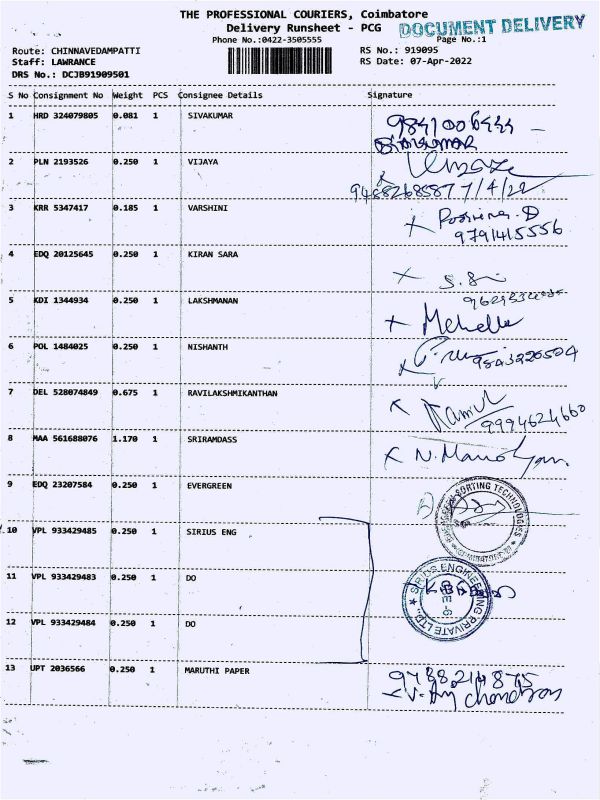 THE PROFESSIONAL COURIERS, Coimbatore
Delivery Runsheet - PCG
DOCUMENT DELIVERY
Phone No.:0422-3505555
Page No.:1
Route: CHINNAVEDAMPATTI
RS No.: 919095
Staff: LAWRANCE
RS Date: 07-Apr-2022
DRS No.: DCJB91909501
S No Consignment No Weight PCS Consignee Details Signature
1 HRD 324079805 0.081 1 SIVAKUMAR
2 PLN 2193526 0.250 1 VIJAYA
9488268587 7/4/22
3 KRR 5347417 0.185 1 VARSHINI
9791415556
4 EDQ 20125645 0.250 1 KIRAN SARA
5 KDI 1344934 0.250 1 LAKSHMANAN
6 POL 1484025 0.250 1 NISHANTH
9843220504
7 DEL 528074849 0.675 1 RAVILAKSHMIKANTHAN
9994624660
8 MAA 561688076 1.170 1 SRIRAMDASS
9 EDQ 23207584 0.250 1 EVERGREEN
SORTING TECHNOLOGIES
10 VPL 933429485 0.250 1 SIRIUS ENG
11 VPL 933429483 0.250 1 DO
ENGINEERING PRIVATE LTD.
12 VPL 933429484 0.250 1 DO
13 UPT 2036566 0.250 1 MARUTHI PAPER